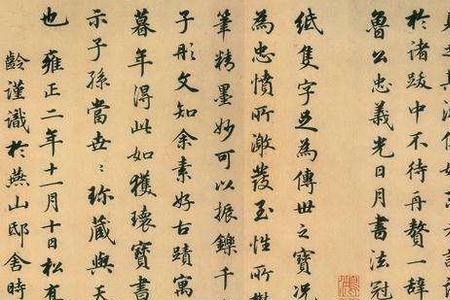 於諸跋中不待再贅一辭
魯公忠義光日月書法冠
紙隻字足為傳世之寶況
為忠憤所激發至性所鬱
筆精墨妙可以振鑠千
子彤文知余素好古蹟寓
暮年得此如獲瓌寶書
示子孫當世〻珍藏與天
也雍正二年十一月十日松有
齡謹識於燕山邸舍時